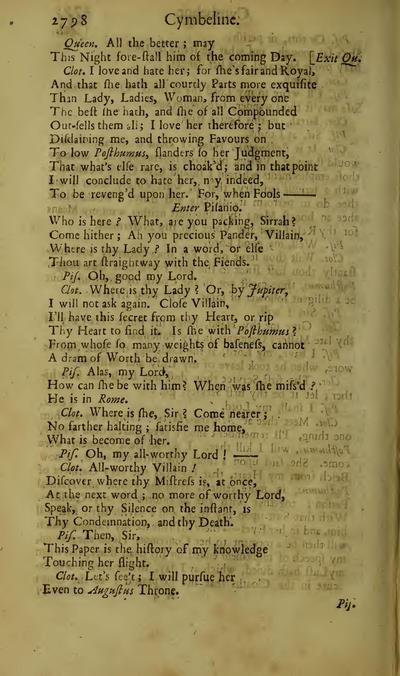 2798 Cymbeline.
Queen. All the better ; may
This Night fore-ſtall him of the coming Day. [Exit Qu.
Clot. I love and hate her; for ſhe's fair and Royal,
And that ſhe hath all courtly Parts more exquiſite
Than Lady, Ladies, Woman, from every one
The beſt ſhe hath, and ſhe of all Compounded
Out-ſells them all; I love her therefore ; but
Diſdaining me, and throwing Favours on
To low Poſthumus, ſlanders ſo her Judgment,
That what's elſe rare, is choak'd; and in that point
I will conclude to hate her, nay indeed,
To be reveng'd upon her. For, when Fools ——
Enter Piſanio.
Who is here ? What, are you packing, Sirrah?
Come hither ; Ah you precious Pander, Villain,
Where is thy Lady ? In a word, or elſe
Thou art ſtraightway with the Fiends.
Piſ. Oh, good my Lord.
Clot. Where is thy Lady ? Or, by Jupiter,
I will not ask again. Cloſe Villain,
I'll have this ſecret from thy Heart, or rip
Thy Heart to find it. Is ſhe with Poſthumus ?
From whoſe ſo many weights of baſeneſs, cannot
A dram of Worth be drawn.
Piſ. Alas, my Lord,
How can ſhe be with him? When was ſhe miſs'd ?
He is in Rome.
Clot. Where is ſhe, Sir ? Come nearer ;
No farther halting ; ſatisfie me home,
What is become of her.
Piſ. Oh, my all-worthy Lord ! ——
Clot. All-worthy Villain !
Diſcover where thy Miſtreſs is, at once,
At the next word ; no more of worthy Lord,
Speak, or thy Silence on the inſtant, is
Thy Condemnation, and thy Death.
Piſ. Then, Sir,
This Paper is the hiſtory of my knowledge
Touching her flight.
Clot. Let's ſee't ; I will purſue her
Even to Auguſtus Throne.
Piſ.